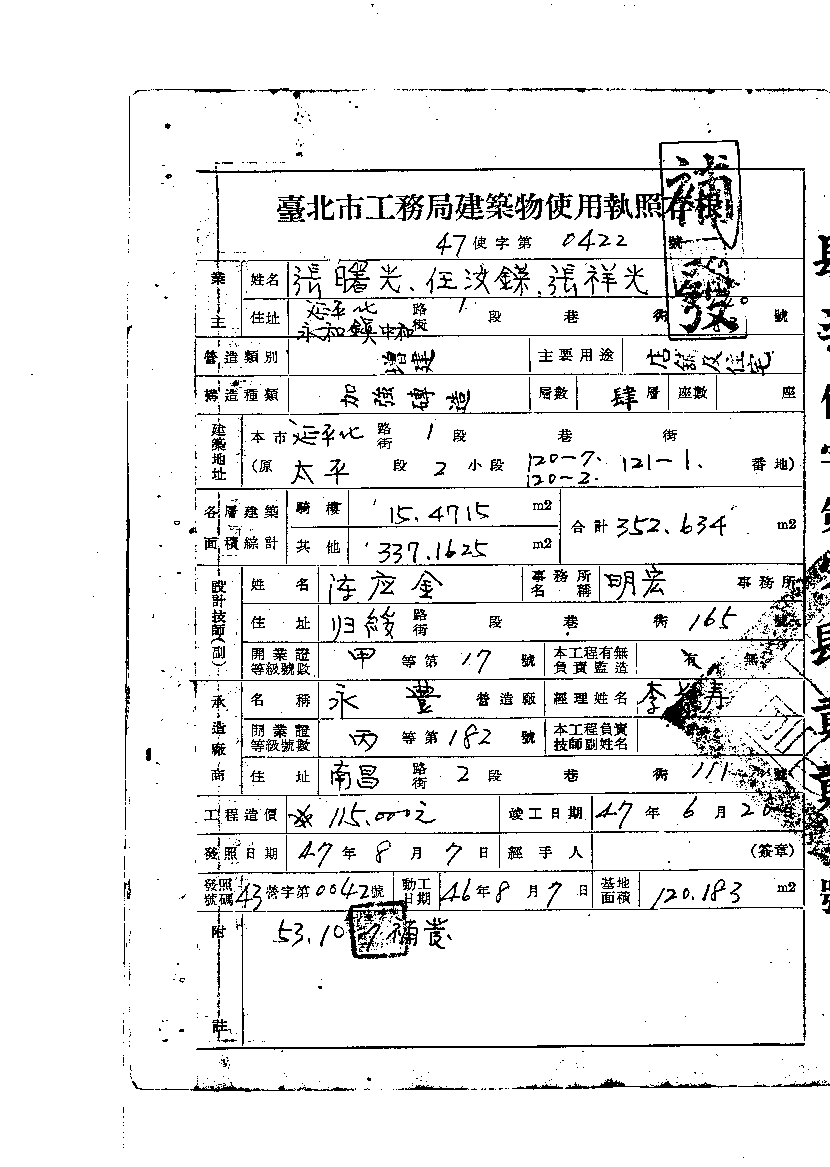 臺北市工務局建築物使用執照存根
補發
47使字第0422號
業主 姓名 張曙光、任汝鎂、張祥光
住址 延平北路街1段 巷 街 號
永和鎮中和
營造類別 增建 主要用途 店舖及住宅
構造種類 加強磚造 層數 肆層 座數 座
建築地址 本市延平北路街1段 巷 街
(原 太平 段 2 小段 120-7. 120-2. 121-1. 番地)
各層建築面積綜計 騎樓 15.4715 m2 合計 352.634 m2
其他 337.1625 m2
設計技師(副) 姓名 陈应金 事務所名稱 明宏 事務所
住址 归綏路街 段 巷 街 165 號
開業證等級號數 甲等第17號 本工程有無負責監造 有 無
承造廠商 名稱 永豐 營造廠 經理姓名 李
開業證等級號數 丙等第182號 本工程負責技師副姓名
住址 南昌路街 2段 巷 街 111 號
工程造價 115.000元 竣工日期 47年6月20
發照日期 47年8月7日 經手人 (簽章)
發照號碼 43營字第0042號 動工日期 46年8月7日 基地面積 120.183 m2
附註 53.10 7補發